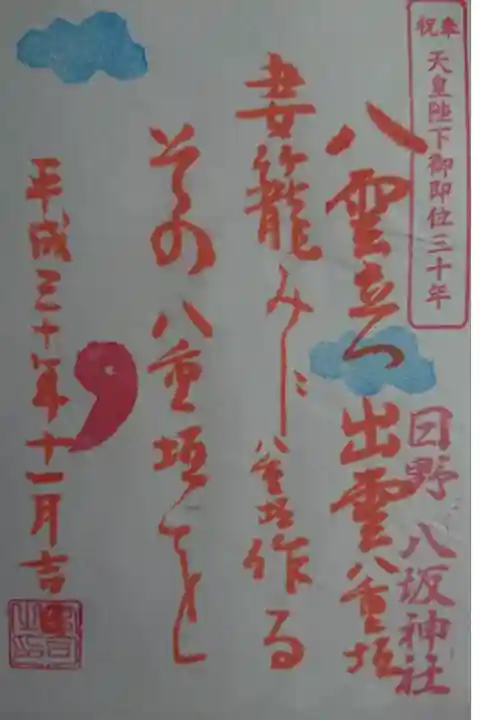 奉祝 天皇陛下御即位三十年
日野 八坂神社
八雲立つ 出雲八重垣
妻籠みに 八重垣作る
その 八重垣を
平成三十年十一月吉日